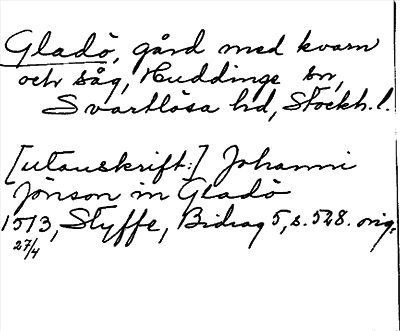 Gladö, gård med kvarn
och såg, Huddinge sn,
Svartlösa hd, Stockh. l.
[utanskrift:] Johanni
Jönson in Gladö
1513, Styffe, Bidrag 5, s. 528. orig.
27/4